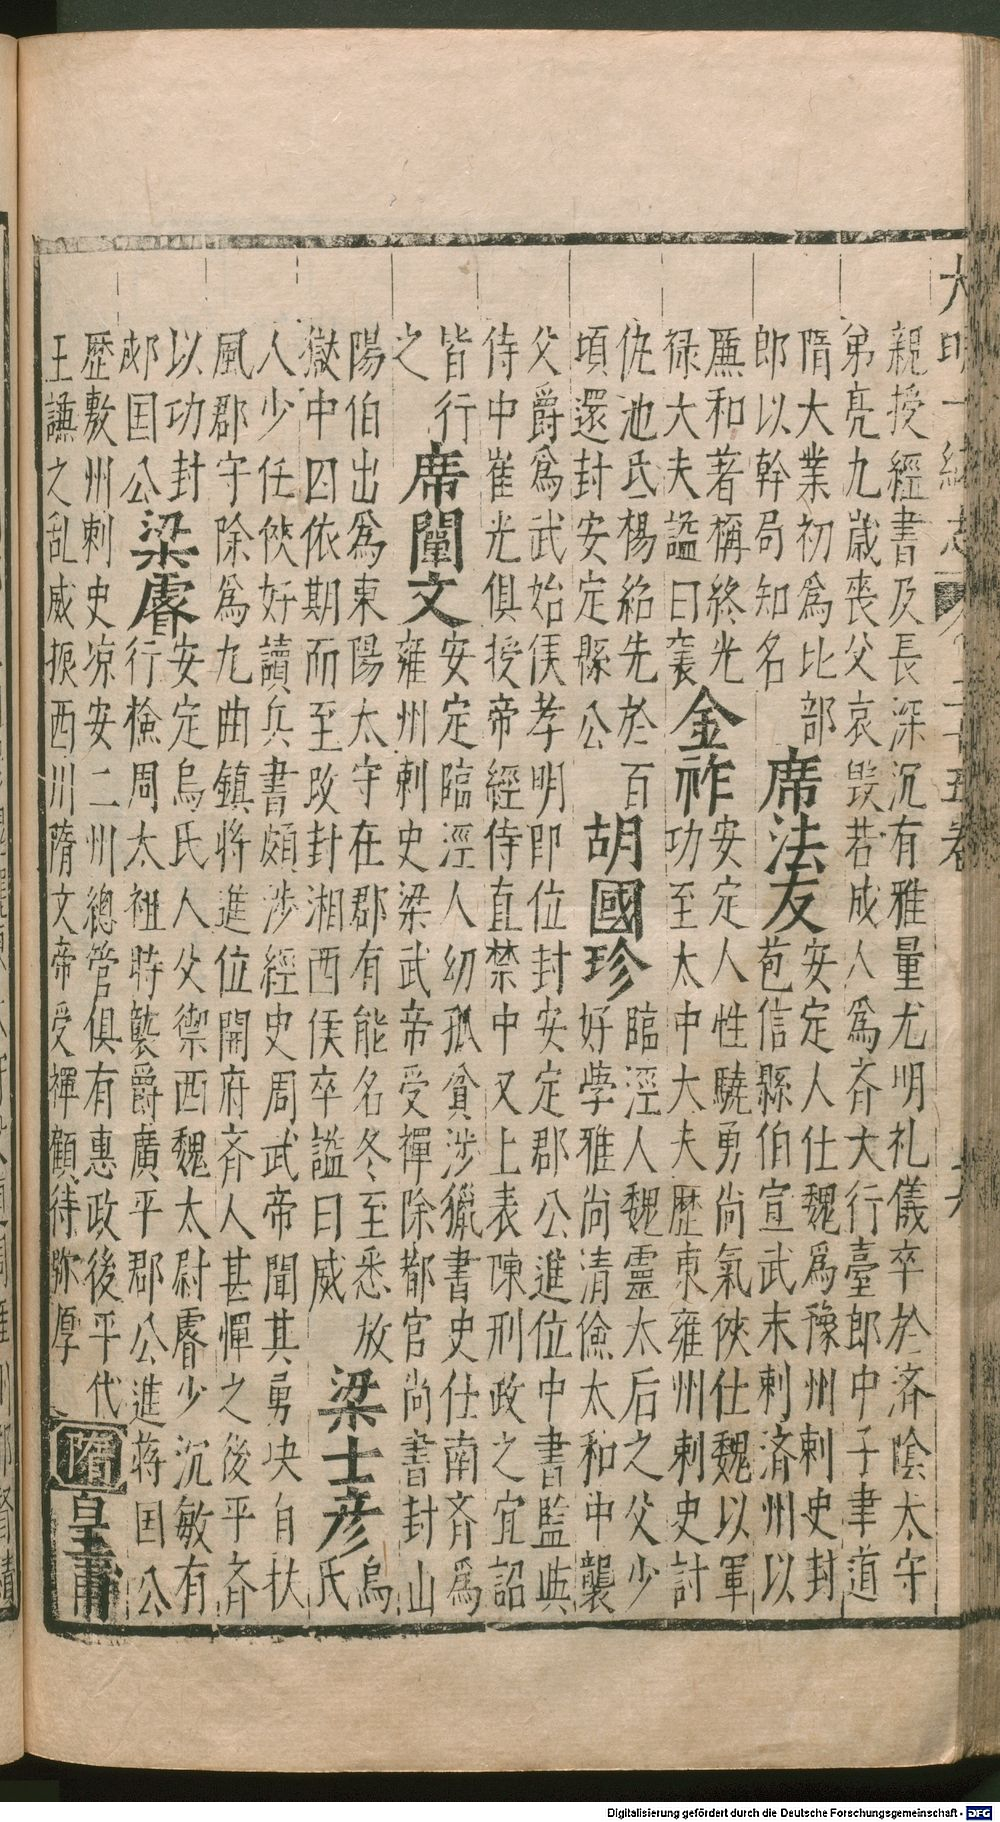 親授經書及長深沉有雅量尤明礼儀卒於済陰太守
弟亮九歳喪父哀毁若成人爲斉大行臺郎中子聿道
隋大業初爲比部
郎以幹局知名
席法友
安定人仕魏爲豫州刺史封
苞信縣伯宣武末刺済州以
廉和著稱終光
禄大夫謚曰襄
金祚
安定人性驍勇尚氣俠仕魏以軍
功至太中大夫歷東雍州刺史討
仇池氐楊紹先於百
頃還封安定縣公
胡國珍
臨涇人魏靈太后之父少
好學雅尚清儉太和中襲
父爵爲武始侯孝明即位封安定郡公進位中書監與
侍中崔光俱授帝經侍直禁中又上表陳刑政之宜詔
皆行
之
席闡文
安定臨涇人幼孤貧涉獵書史仕南斉爲
雍州刺史梁武帝受禪除都官尚書封山
陽伯出爲東陽太守在郡有能名冬至悉放
獄中囚依期而至改封湘西侯卒謚曰威
梁士彦
烏
氏
人少任俠好讀兵書頗涉經史周武帝聞其勇决自扶
風郡守除爲九曲鎮將進位開府斉人甚憚之後平斉
以功封
郕国公
梁睿
安定烏氏人父禦西魏太尉睿少沉敏有
行檢周太祖時襲爵廣平郡公進蒋国公
歷敷州刺史凉安二州總管俱有惠政後平代
王謙之乱威振西川隋文帝受禪顧待弥厚
隋
皇甫
Digitalisierung gefördert durch die Deutsche Forschungsgemeinschaft - DFG